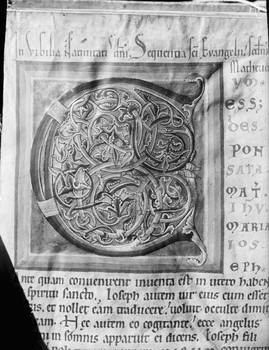 n Vigilia Natiuitatis dñi. Sequentia sc̄i Euangelii
Matheu
ESS;
DES
PON
SATA
MAT̄.
IHV
MARIA
IOS
EPH.
nte quam conuenirent inuenta est in utero haben
spiritu sancto. Ioseph autem uir eius cum esset
et nollet eam traducere, uoluit occulte dimitt
eam. Hec autem eo cogitante, ecce angelus
in somnis apparuit ei dicens, Ioseph fili